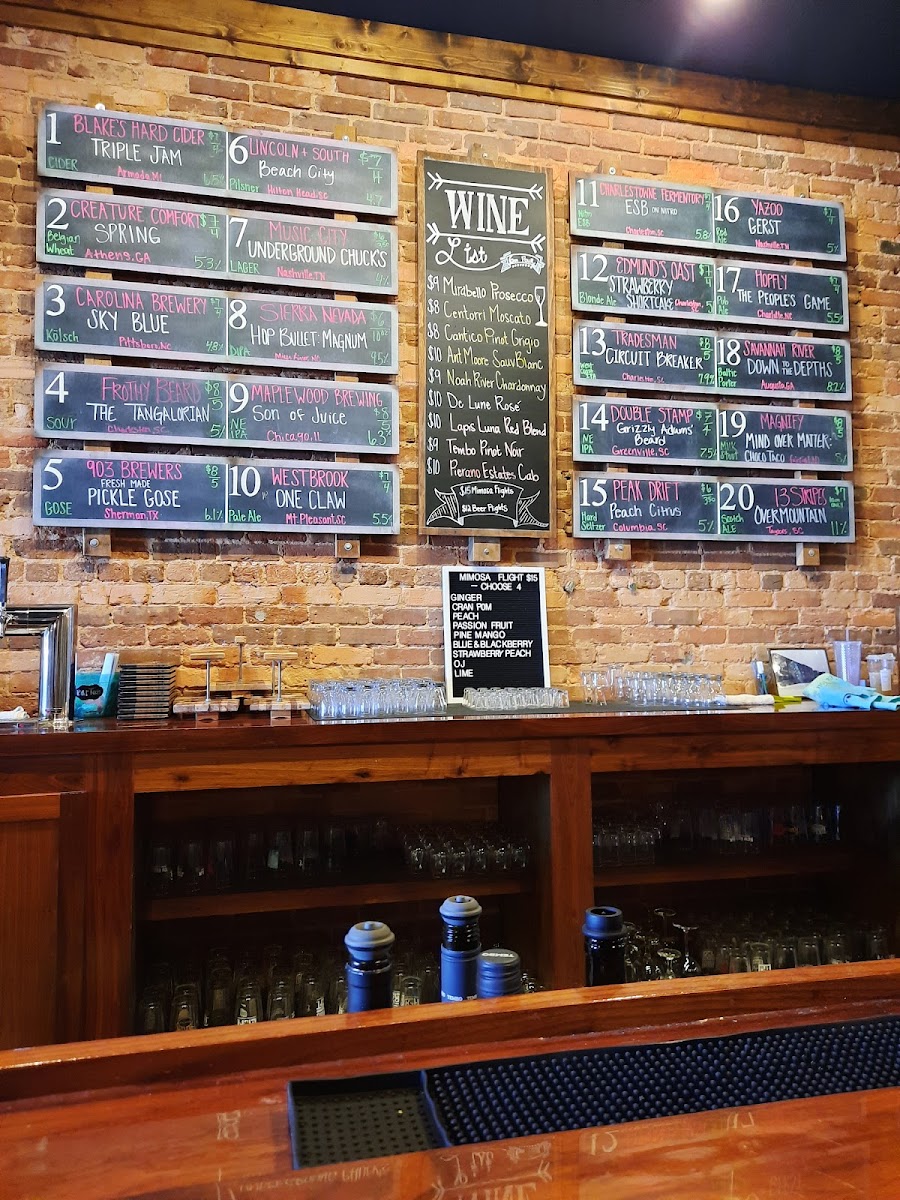 1 BLAKE'S HARD CIDER
TRIPLE JAM
CIDER
Armada, MI
2 CREATURE COMFORTS $7/4
SPRING
Belgian Wheat
Athens, GA
5.3%
3 CAROLINA BREWERY
SKY BLUE
Kölsch
Pittsboro, NC
4.8%
4 FROTHY BEARD $8/5
THE TANGALORIAN
SOUR
Charleston, SC
5%
5 903 BREWERS $8/5
FRESH MADE
PICKLE GOSE
GOSE
Sherman, TX
6.1%
6 LINCOLN + SOUTH $7/4
Beach City
Pilsner
Hilton Head, SC
4.7
7 MUSIC CITY
UNDERGROUND CHUCKS
LAGER
Nashville, TN
8 SIERRA NEVADA
HOP BULLET MAGNUM
DIPA
9.5%
9 MAPLEWOOD BREWING
SON OF JUICE
$8/5
NE IPA
Chicago, Il
6.3%
10 WESTBROOK $7/4
ONE CLAW
Pale Ale
Mt. Pleasant, SC
5.5%
WINE
List
$9 Mirabello Prosecco
$8 Centorri Moscato
$8 Cantico Pinot Grigio
$10 Art Moore Sauv Blanc
$9 Noah River Chardonnay
$10 De Lune Rosé
$10 Lapis Luna Red Blend
$9 Tembo Pinot Noir
$10 Pierano Estates Cab
$15 Mimosa Flights
$12 Beer Flights
11 CHARLESTOWNE FERMENTORY
ESB ON NITRO
Nitro ESB
Charleston, SC
5.8%
12 EDMUND'S OAST
STRAWBERRY
SHORTCAKE
Blonde Ale
Charleston
13 TRADESMAN
CIRCUIT BREAKER
Charleston, SC
7.9%
14 DOUBLE STAMP $7/4
Grizzly Adams
Beard
NE IPA
Greenville, SC
7.5%
15 PEAK DRIFT
Peach Citrus
Hard Seltzer
Columbia, SC
5%
16 YAZOO
GERST
Red Ale
Nashville, TN
5%
17 HOPFLY
THE PEOPLE'S GAME
Pub Ale
Charlotte, NC
5.5%
18 SAVANNAH RIVER
DOWN TO THE DEPTHS
Baltic Porter
Augusta, GA
8.2%
19 MAGNIFY
MIND OVER MATTER:
CHOCO TACO
Milk Stout
20 13 STRIPES
OVERMOUNTAIN
Scotch ALE
Taylors, SC
11%
MIMOSA FLIGHT $15
— CHOOSE 4
GINGER
CRAN POM
PEACH
PASSION FRUIT
PINE MANGO
BLUE & BLACKBERRY
STRAWBERRY PEACH
OJ
LIME